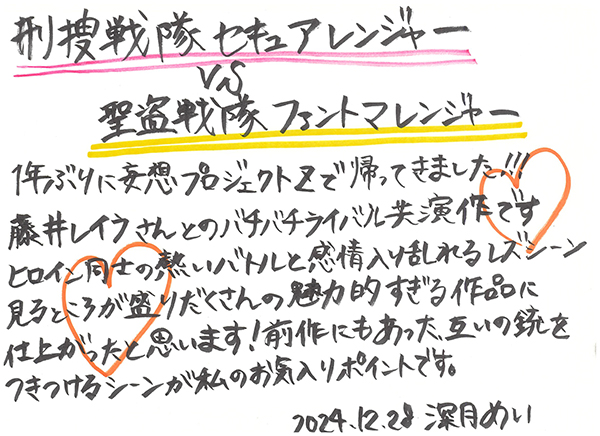 刑捜戦隊セキュアレンジャー
VS
聖盗戦隊ファントマレンジャー
1年ぶりに妄想プロジェクトZで帰ってきました!!!
藤井レイラさんとのバチバチライバル共演作です
ヒロイン同士の熱いバトルと感情入り乱れるレズシーン
見るところが盛りだくさんの魅力的すぎる作品に
仕上がったと思います!前作にもあった、互いの銃を
つきつけるシーンが私のお気入りポイントです。
2024.12.28 深月めい